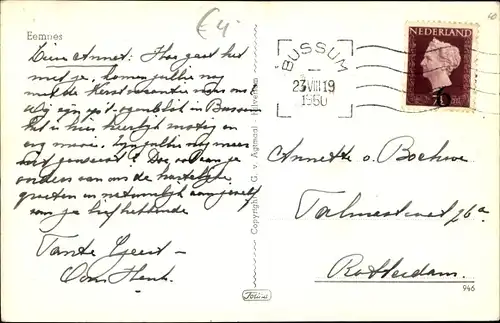 Eemnes
€4
Lieve Annet: Hoe gaat het
met je, komen jullie nog
de Kerstvacantie naar ons toe
Wij zijn op 't ogenblik in Bussum
het is hier heerlijk rustig en
erg mooi. Zijn jullie nog meer
geweest? Doe van je
ouders van ons de hartelijke
groeten en natuurlijk aan jezelf
van je liefhebbende
Tante Geert –
Oom Henk.
Copyright G. v. Agtmaal - Hilversum
BUSSUM
23 VIII 19
1950
NEDERLAND
6
Annette v. Bochove
Talmastraat 76a
Rotterdam.
946